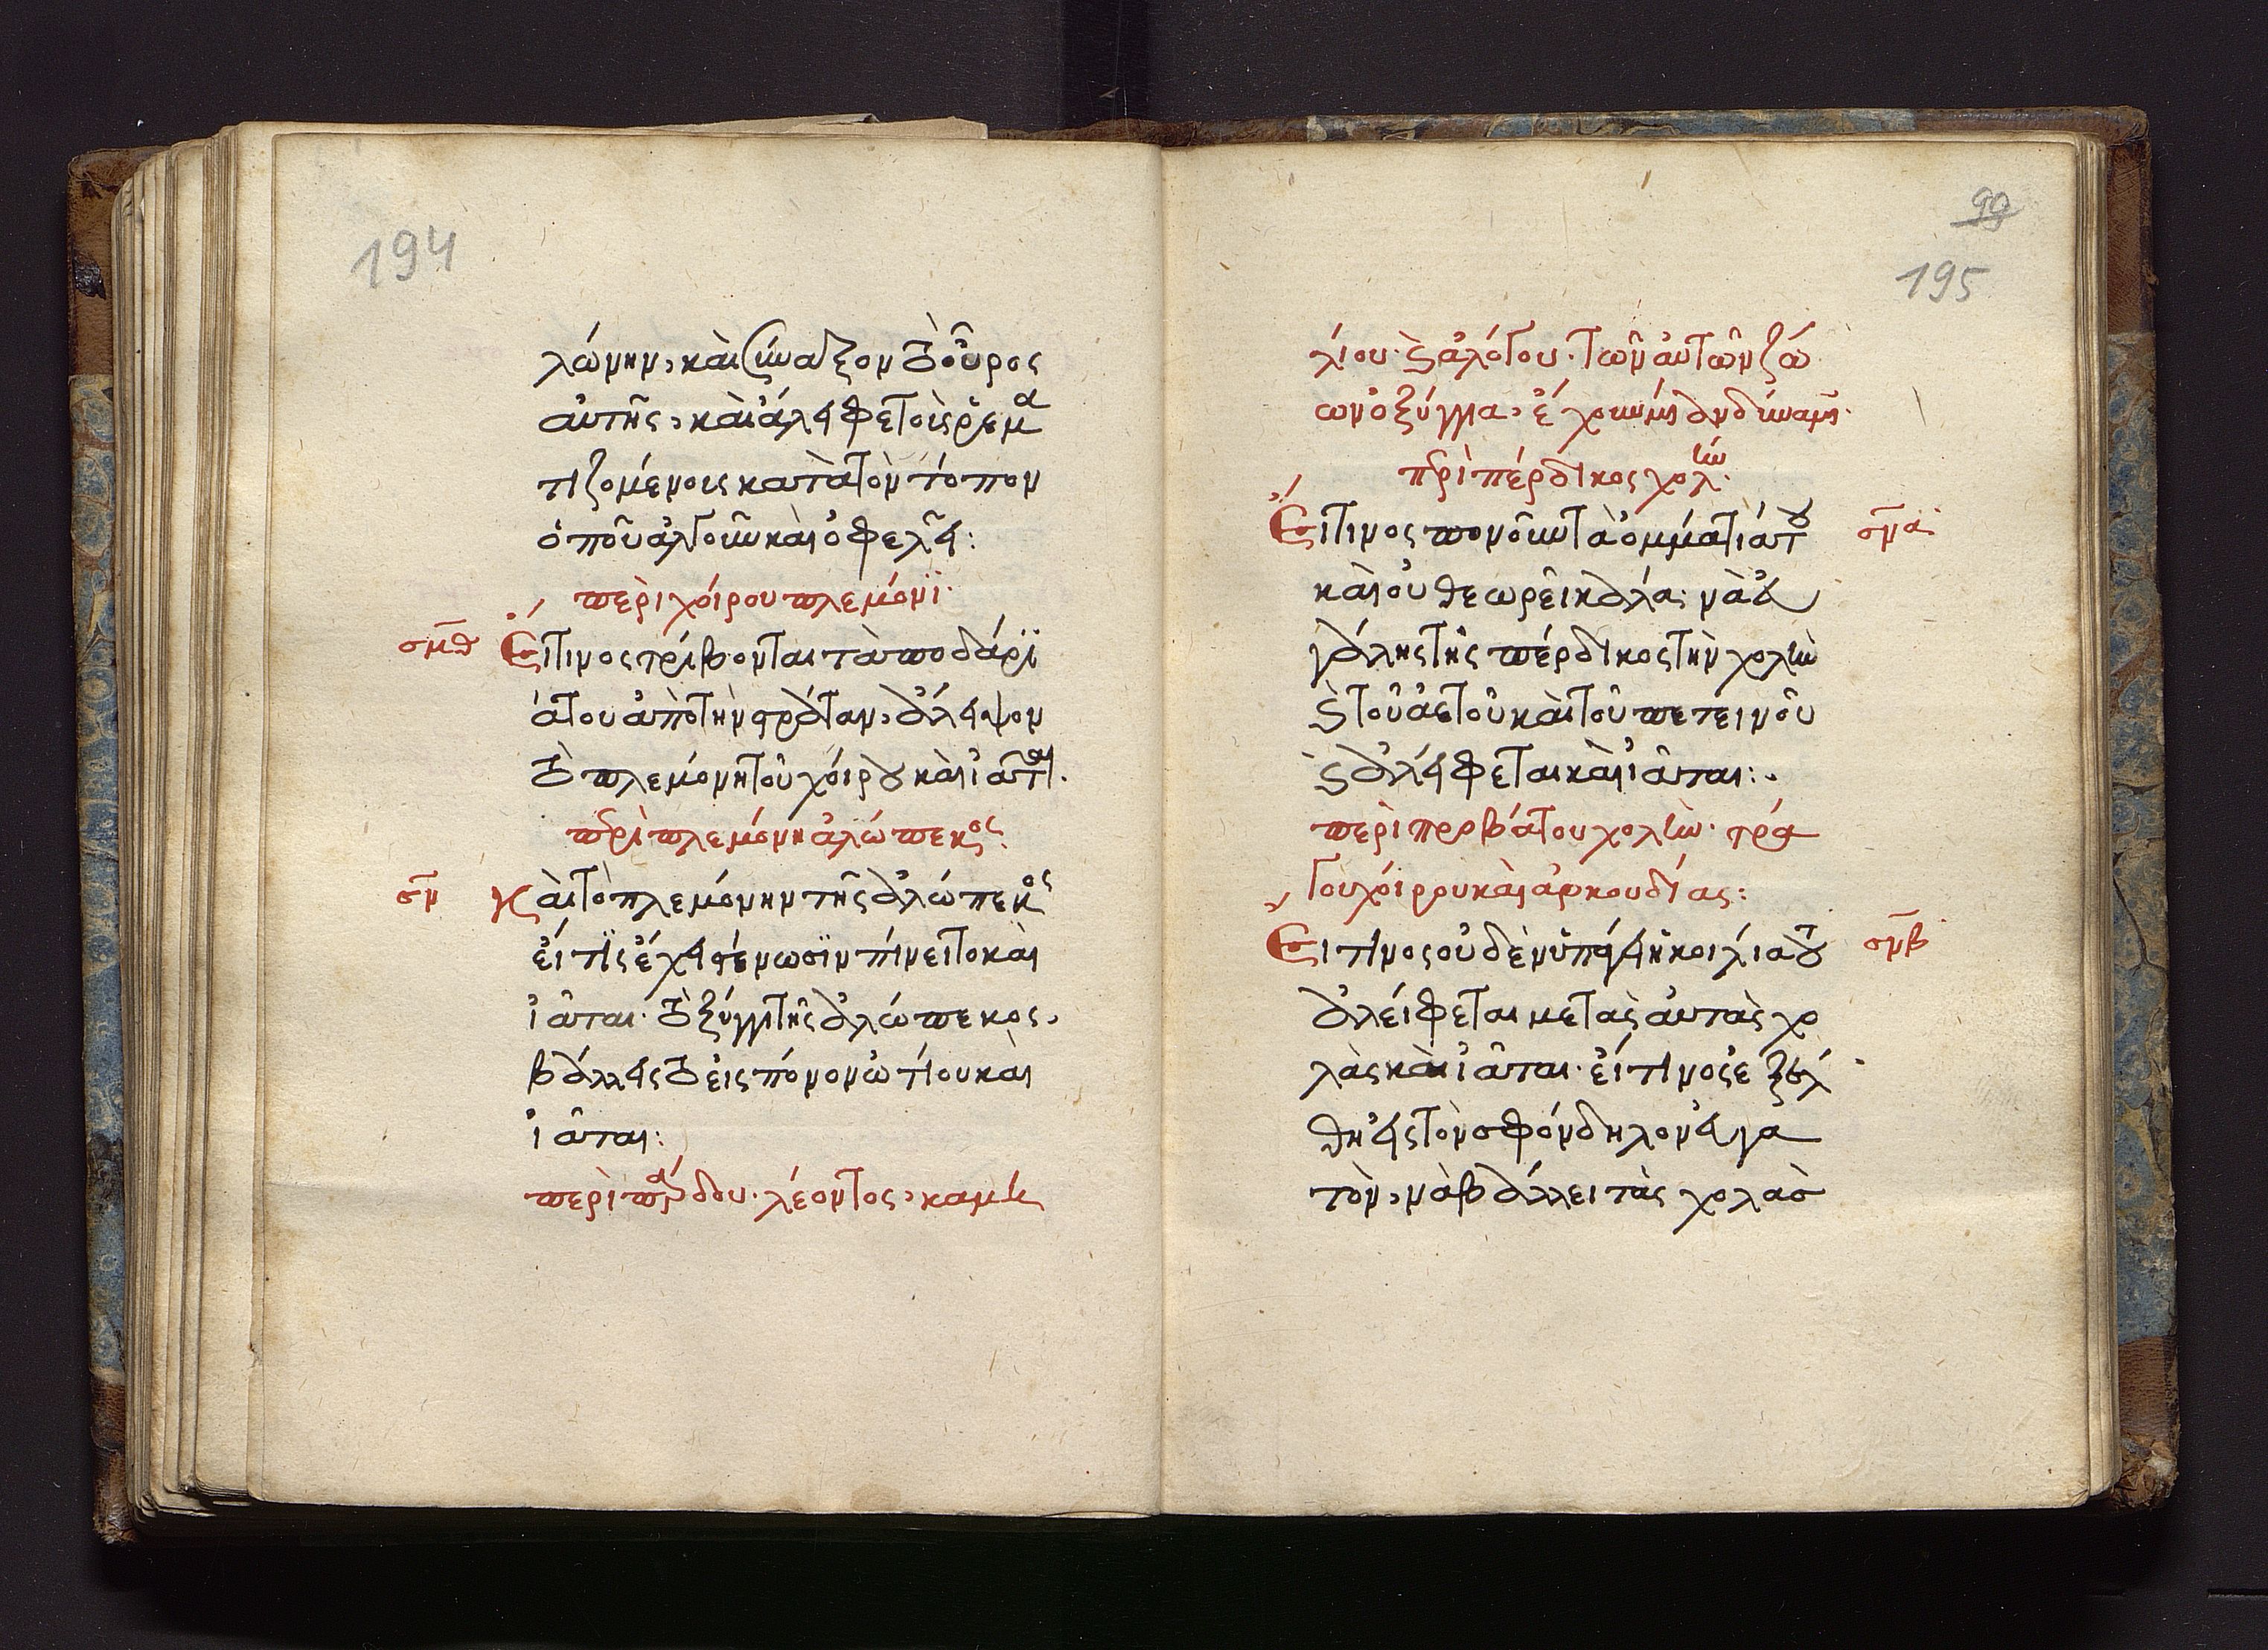 194
λώνην, καὶ σύναξον τὸ οὖρος
αὐτῆς, καὶ ἀλείφε τοὶς ῥεμα
τιζομένοις κατὰ τὸν τόπον
ὁποῦ ἀλγοῦν καὶ ὀφελεῖ:
περὶ χοίρου πλεμόνι·
σμθ Εἴ τινος τρίβονται τὰ ποδάρϊ
ά του ἀπὸ τὴν στράταν, ἄλειψον
τὸ πλεμόνη τοῦ χοίρου καὶ ἰᾶται.
περὶ πλεμόνη ἀλώπεκος.
σν Καὶ τὸ πλεμόνην τῆς ἀλώπεκος
εἴ τϊς ἔχει στένωσϊν πίνει το καὶ
ἰᾶται· τὸ ξύγγι τῆς ἀλώπεκος,
βάλλεις τὸ εἰς πόνον ὠτίου καὶ
ἰᾶται:
περὶ πάρδου· λέοντος, καμη
99
195
λίου· καὶ ἀλόγου· τῶν αὐτῶν ζώ
ων ὀξύγγια, ἔχουσιν δύναμιν·
περὶ πέρδικος χολήν·
Εἴ τινος πονοῦν τὰ ὀμμάτιά του σνα
καὶ οὐ θεωρεῖ καλά: νὰ ἐ
γάλης τῆς πέρδικος τὴν χολὴν
καὶ τοῦ ἀετοῦ καὶ τοῦ πετεινοῦ
καὶ ἀλείφεται καὶ ἰᾶται:.
περὶ προβάτου χολὴν· τρά
γου χοίρου καὶ ἀρκουδίας:
Εἴ τινος οὐδὲν ὑπάγει ἡ κοιλία του σνβ
ἀλείφεται με τὰς αὐτὰς χο
λὰς καὶ ἰᾶται· εἴ τινος ἐξέλ
θη εἰς τὸν σφόνδηλον
τὸν, νὰ βάλλει τὰς χολὰσ